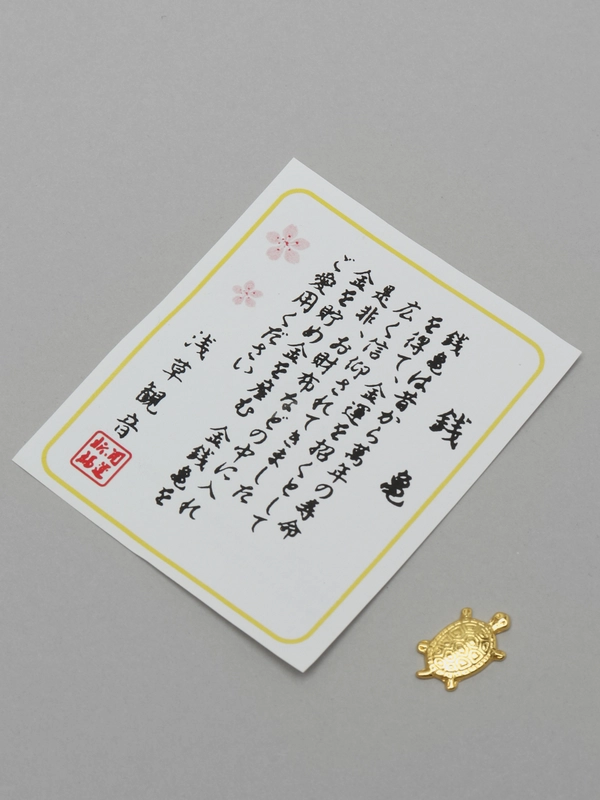 銭亀
銭亀は昔から萬年の寿命
を得て、金運を招くとして
広く信仰されてきました
是非、お財布などの中に入れ
金を貯め金を産む金銭亀を
ご愛用ください
浅草観音
開運